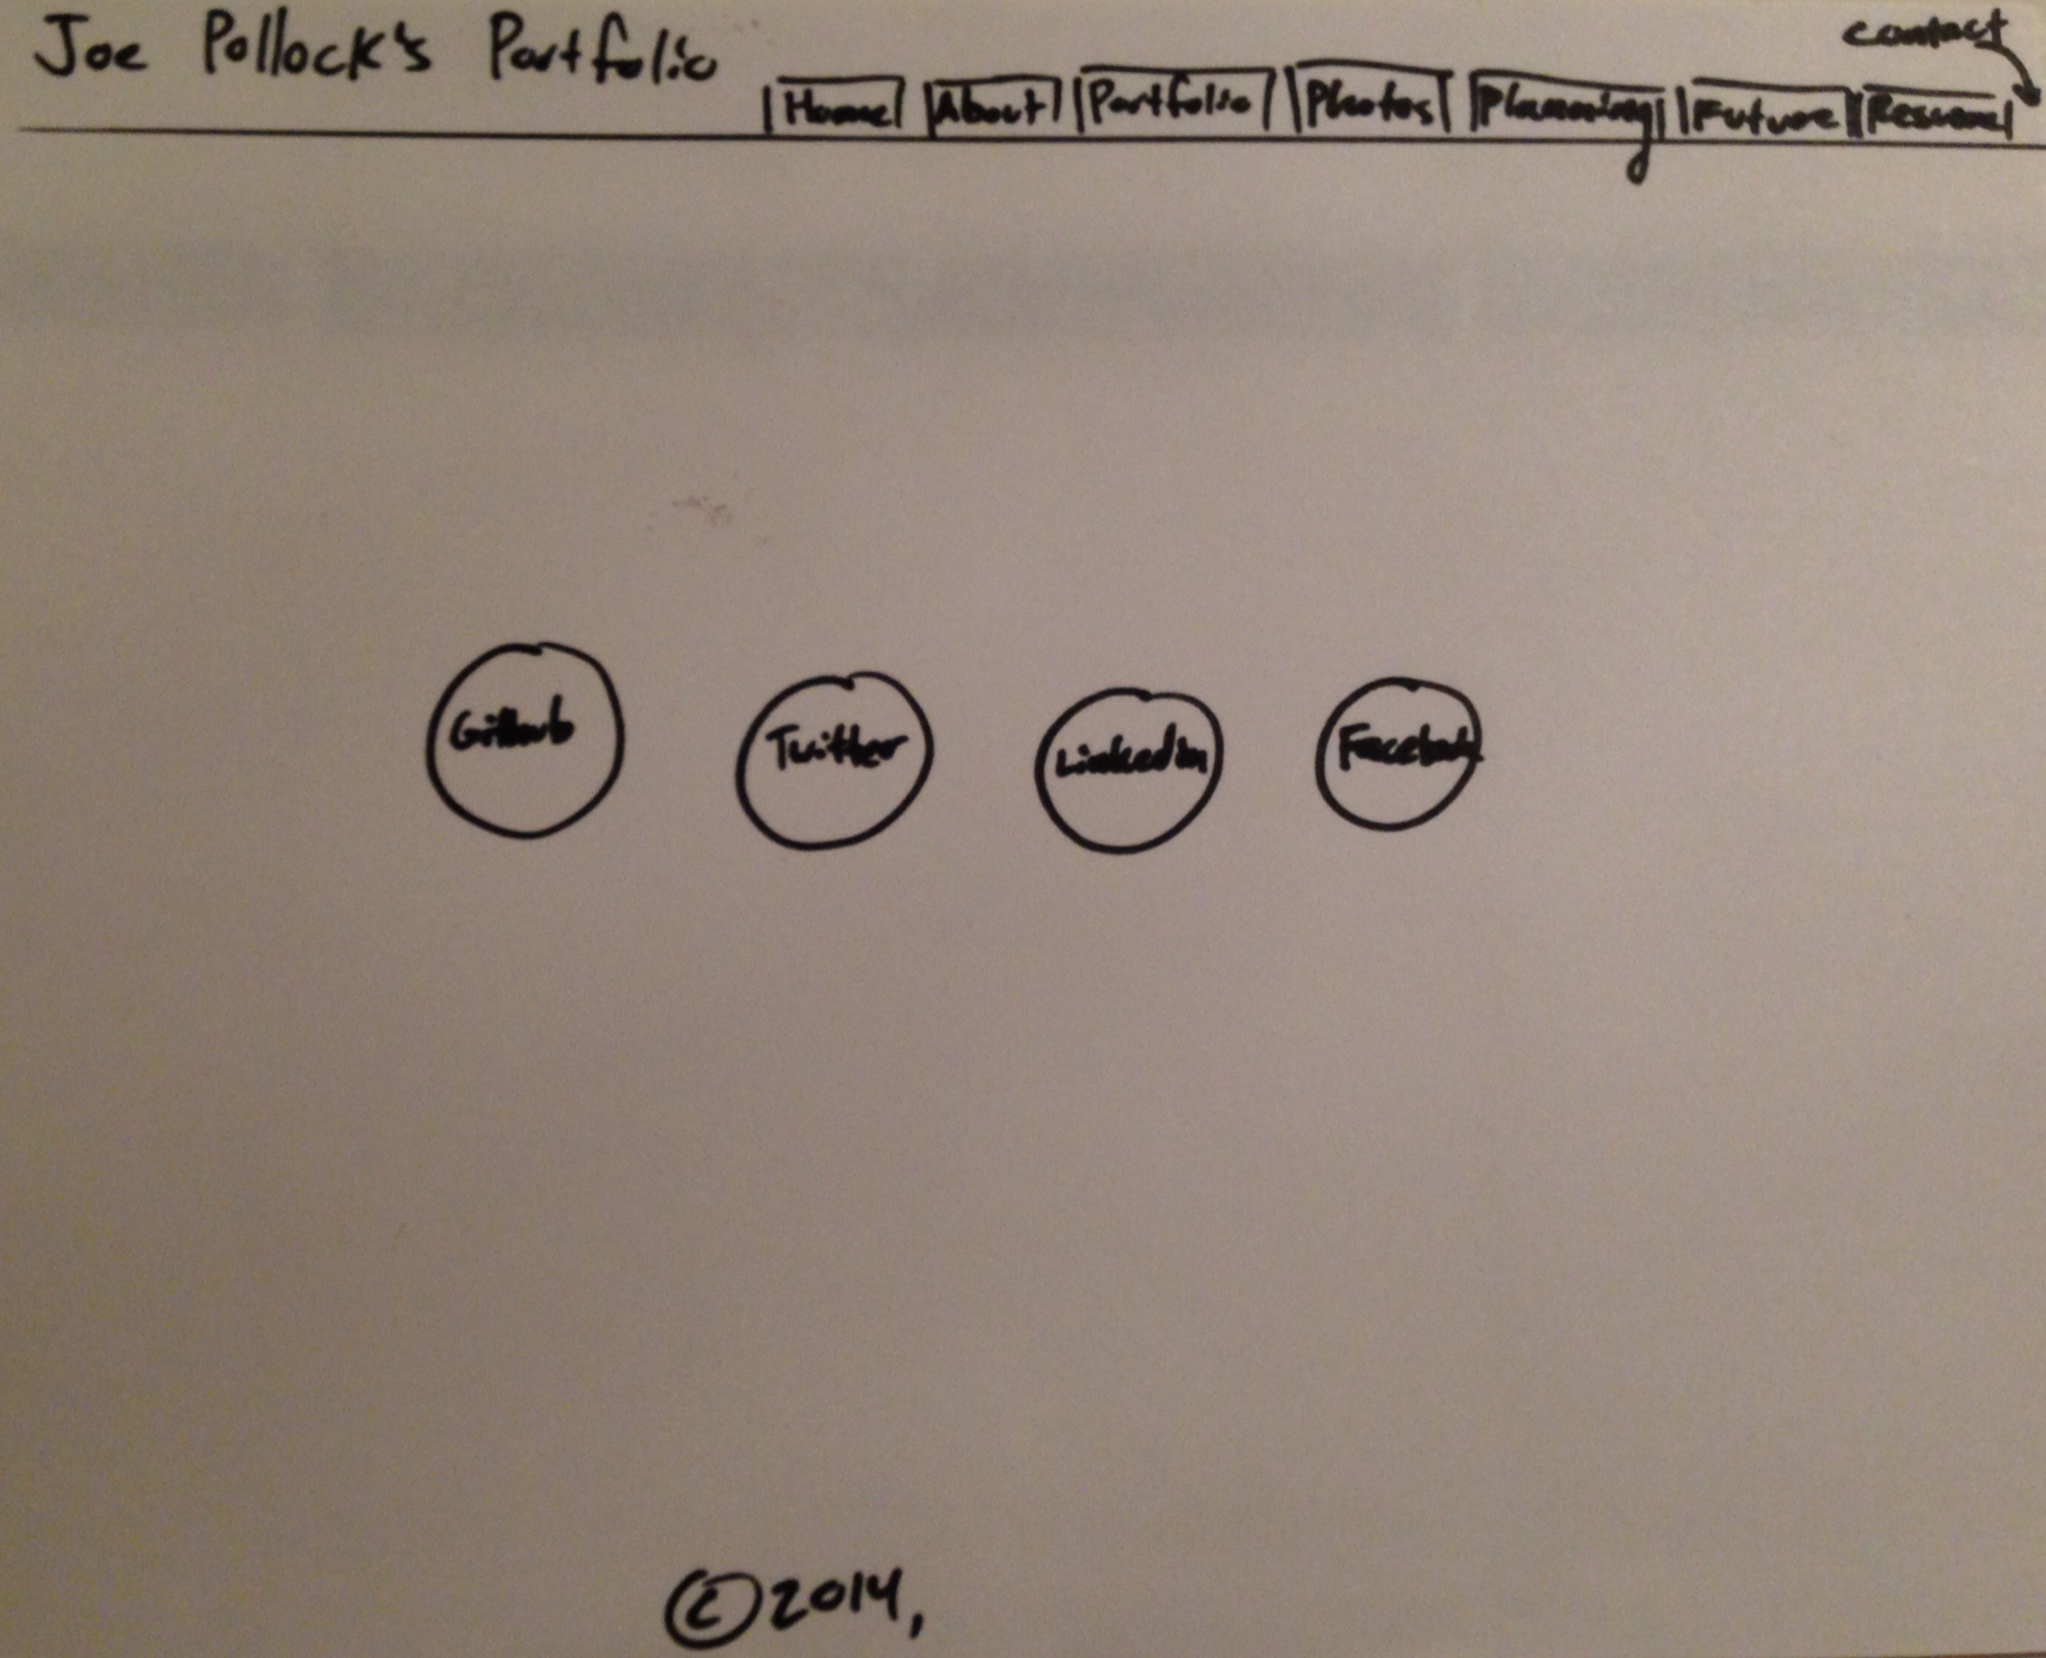 Joe Pollock's Portfolio
contact
Home About Portfolio Photos Planning Future Resume
Github Twitter LinkedIn Facebook
© 2014,